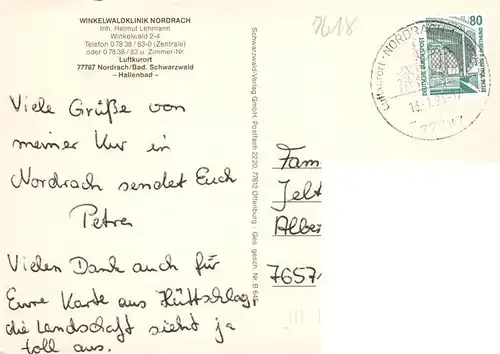 WINKELWALDKLINIK NORDRACH
Inh. Helmut Lehmann
Winkelwald 2-4
Telefon 0 78 38 / 83-0 (Zentrale)
oder 0 78 38 / 83 u. Zimmer-Nr.
Luftkurort
77787 Nordrach/Bad. Schwarzwald
– Hallenbad –
Viele Grüße von
meiner Kur in
Nordrach sendet Euch
Petra
Vielen Dank auch für
Eure Karte aus Hüttschlag,
die Landschaft sieht ja
toll aus.
Schwarzwald-Verlag GmbH, Postfach 2220, 77612 Offenburg - Ges. gesch. Nr. B 645
7618
80
DEUTSCHE BUNDESPOST
Luftkurort · NORDRACH
Fam
Jelt
Alber
7657